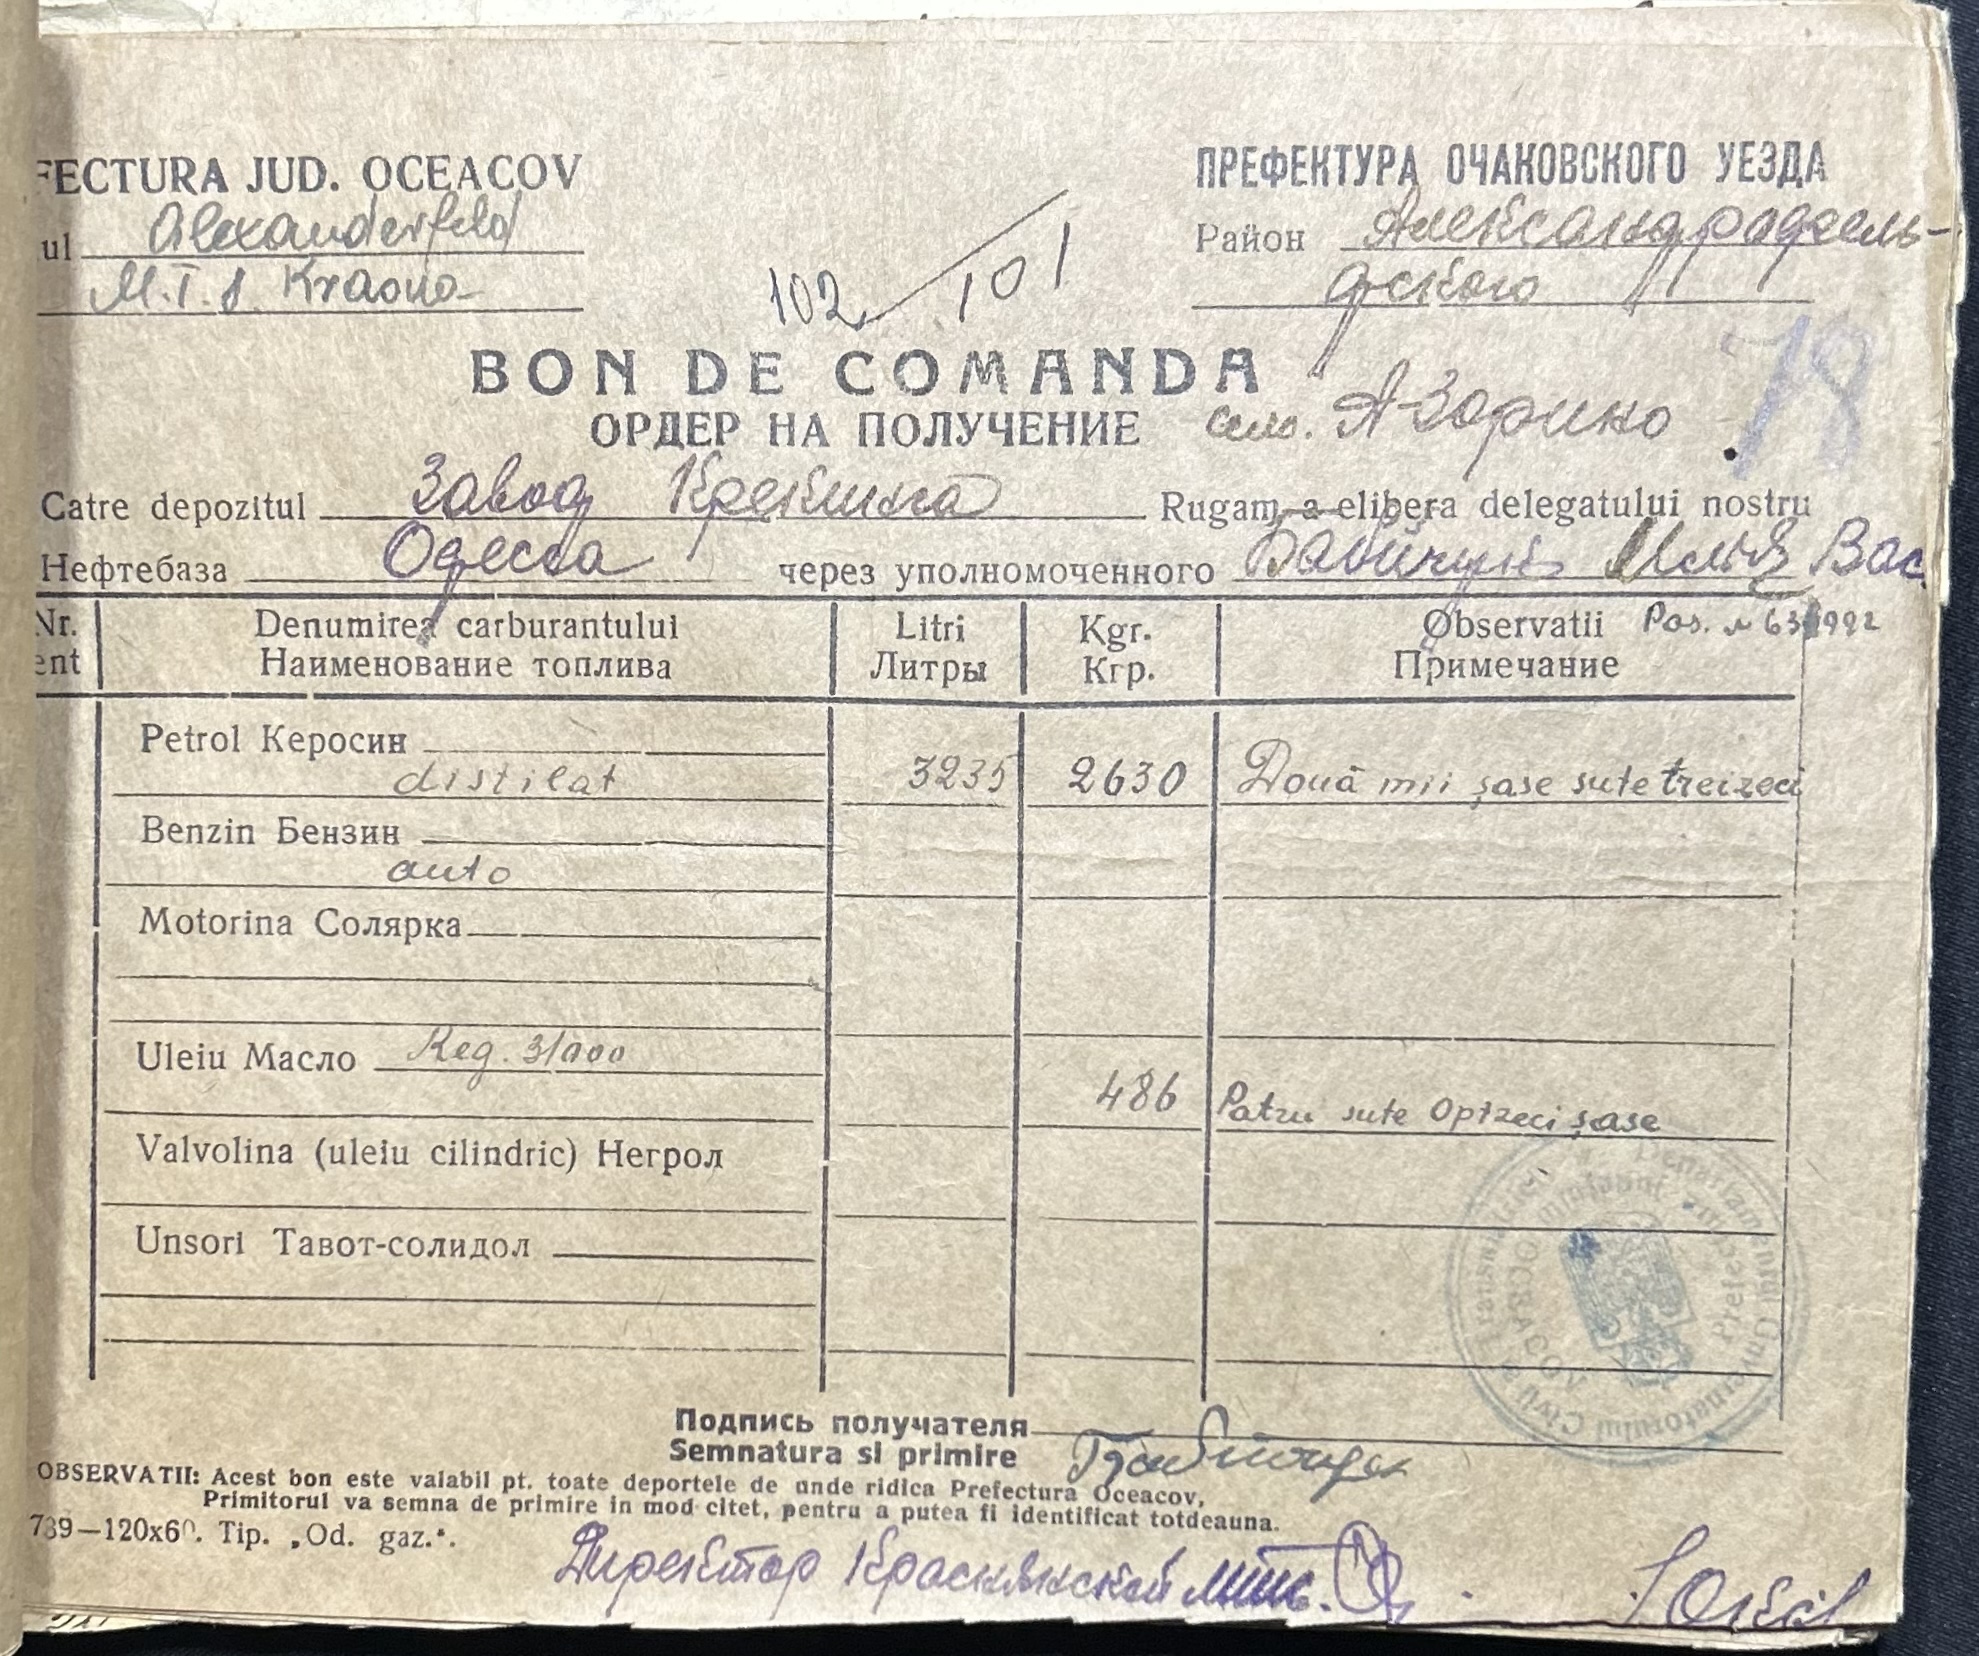 FECTURA JUD. OCEACOV
ПРЕФЕКТУРА ОЧАКОВСКОГО УЕЗДА
ul Alexanderfeld
Район Александрофель-
M.T.S. Krasno-
дского
102 / 101
BON DE COMANDA
ОРДЕР НА ПОЛУЧЕНИЕ село.
78
Catre depozitul Завод Крекинга Rugam a elibera delegatului nostru
Нефтебаза Одесса через уполномоченного Илья Вас.
Nr. Denumirea carburantului Litri Kgr. Observatii Pas. №
ent Наименование топлива Литры Кгр. Примечание
Petrol Керосин
distilat 3235 2630 Două mii șase sute treizeci
Benzin Бензин
auto
Motorina Солярка
Uleiu Масло Reg.
486 Patru sute optzeci șase
Valvolina (uleiu cilindric) Негрол
Unsori Тавот-солидол
OCEACOV
Подпись получателя
Semnatura si primire
OBSERVATII: Acest bon este valabil pt. toate deportele de unde ridica Prefectura Oceacov,
Primitorul va semna de primire in mod citet, pentru a putea fi identificat totdeauna.
739—120x60. Tip. „Od. gaz.".
Директор Краснянской мтс.